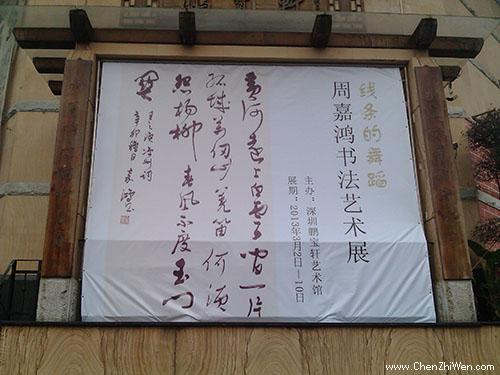 线条的舞蹈
周嘉鸿书法艺术展
主办：深圳鹏宝轩艺术馆
展期：2013年3月2日—10日
黄河遠上白雲間一片
孤城萬仞山羌笛何須
怨楊柳春風不度玉門
關
王之涣凉州词
辛卯穐日
www.ChenZhiWen.com